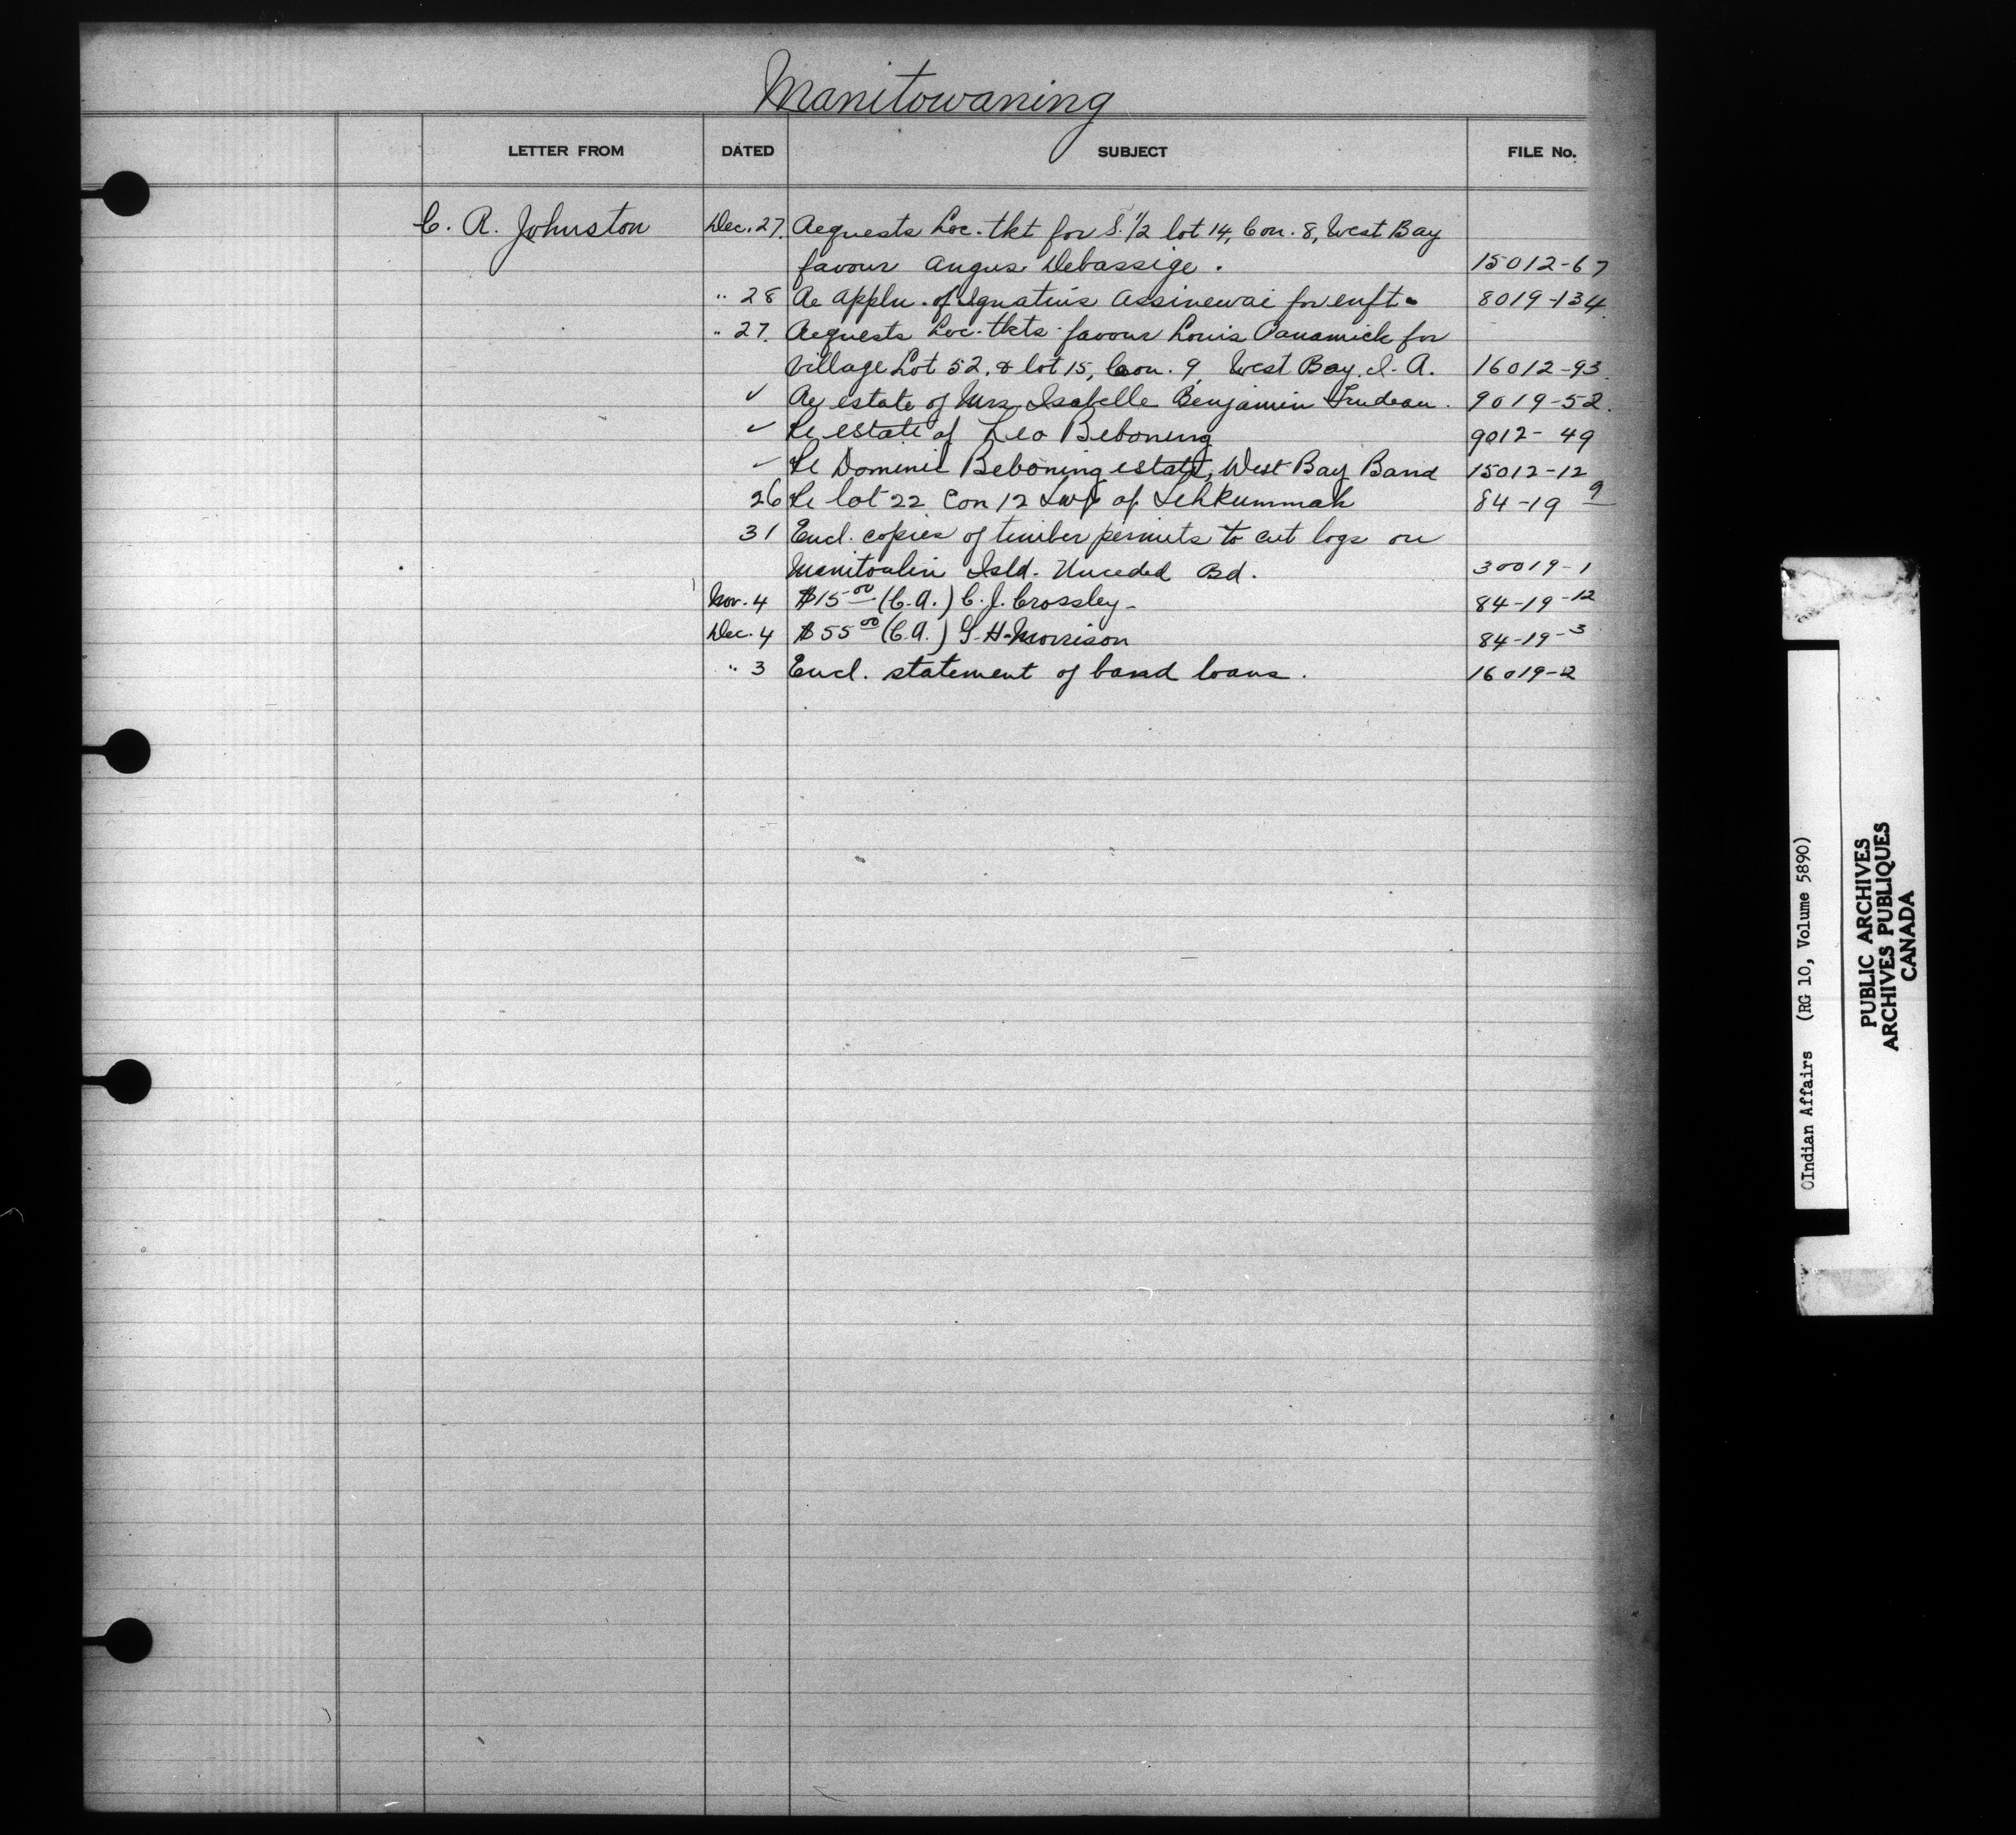 Manitowaning
LETTER FROM DATED SUBJECT FILE No.
C. R. Johnston Dec. 27. Requests Loc. tkt for S. 1/2 lot 14, Con. 8, West Bay
favour Angus Debassige. 15012-67
" 28 Re appln. of Ignatius Assinewai for enft. 8019-134.
" 27. Requests Loc. tkts favour Louis Panamick for
Village Lot 52, & lot 15, Con. 9, West Bay I. R. 16012-93.
✓ Re estate of Mrs. Isabelle Benjamin Trudeau. 9019-52.
✓ Re estate of Leo Beboning 9012-49
✓ Re Dominic Beboning estate, West Bay Band 15012-12
26 Re lot 22 Con 12 Twp of Tehkummah 84-19-9
31 Encl. copies of timber permits to cut logs on
Manitoulin Isld. Unceded Bd. 30019-1
Nov. 4 $15.00 (C.A.) C. J. Crossley 84-19-12
Dec. 4 $55.00 (C.A.) G. H. Morrison 84-19-3
" 3 Encl. statement of band loans. 16019-2
Indian Affairs (RG 10, Volume 5890)
PUBLIC ARCHIVES
ARCHIVES PUBLIQUES
CANADA